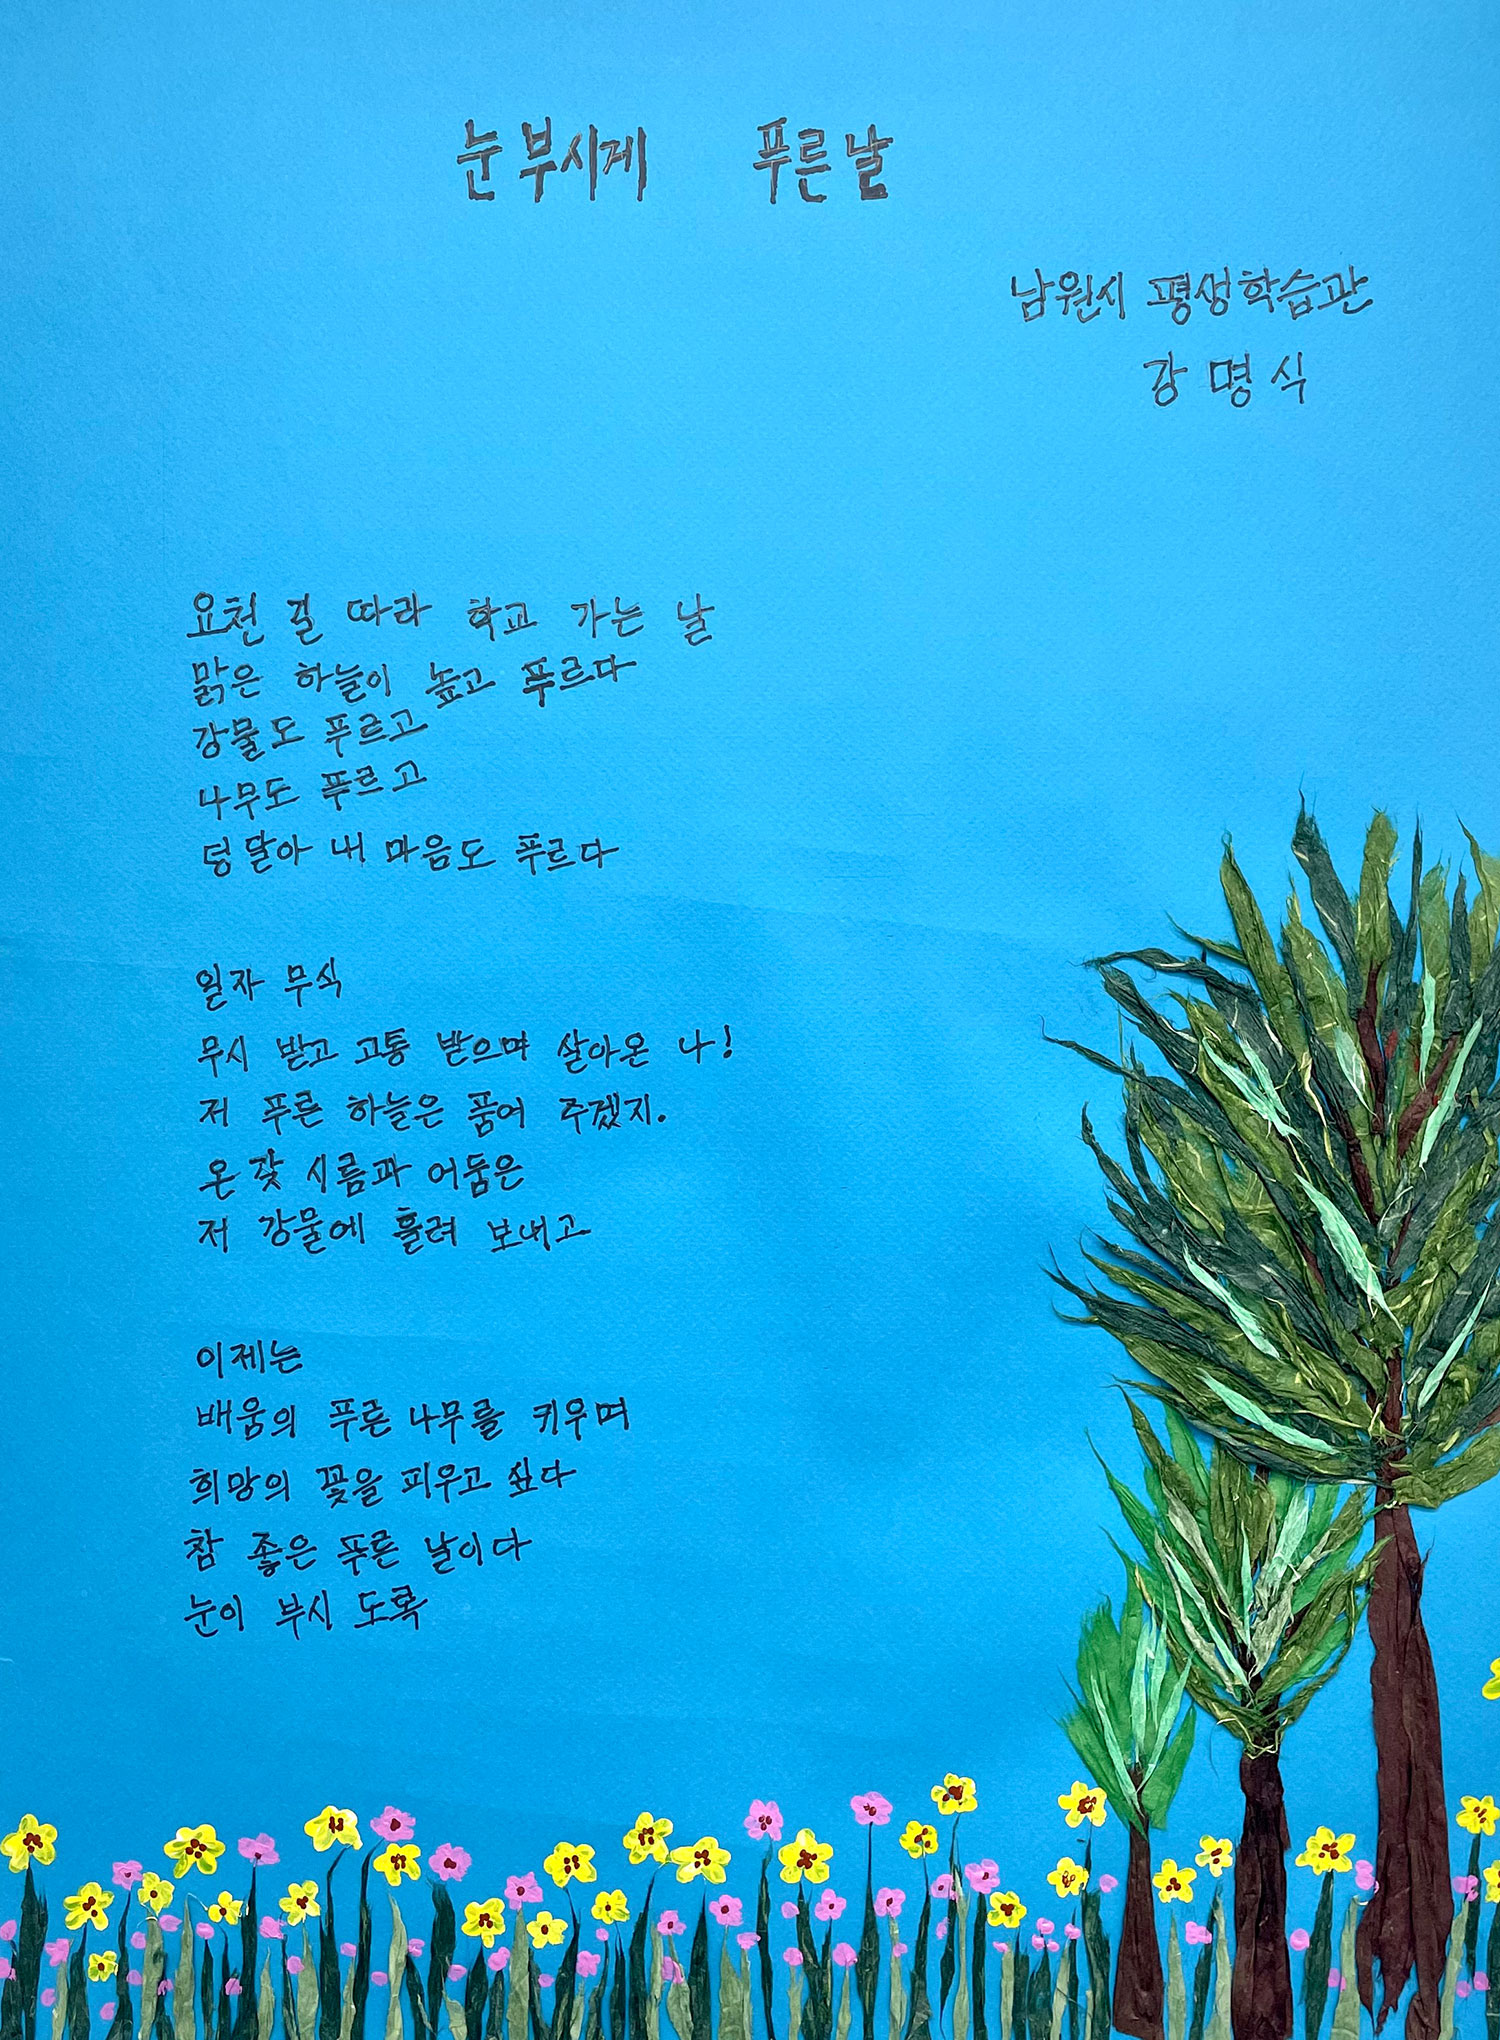 눈부시게 푸른날
남원시 평생학습관
강명식
요천 길 따라 학교 가는 날
맑은 하늘이 높고 푸르다
강물도 푸르고
나무도 푸르고
덩달아 내 마음도 푸르다
일자 무식
무시 받고 고통 받으며 살아온 나!
저 푸른 하늘은 품어 주겠지.
온갖 시름과 어둠은
저 강물에 흘려 보내고
이제는
배움의 푸른 나무를 키우며
희망의 꽃을 피우고 싶다
참 좋은 푸른 날이다
눈이 부시 도록